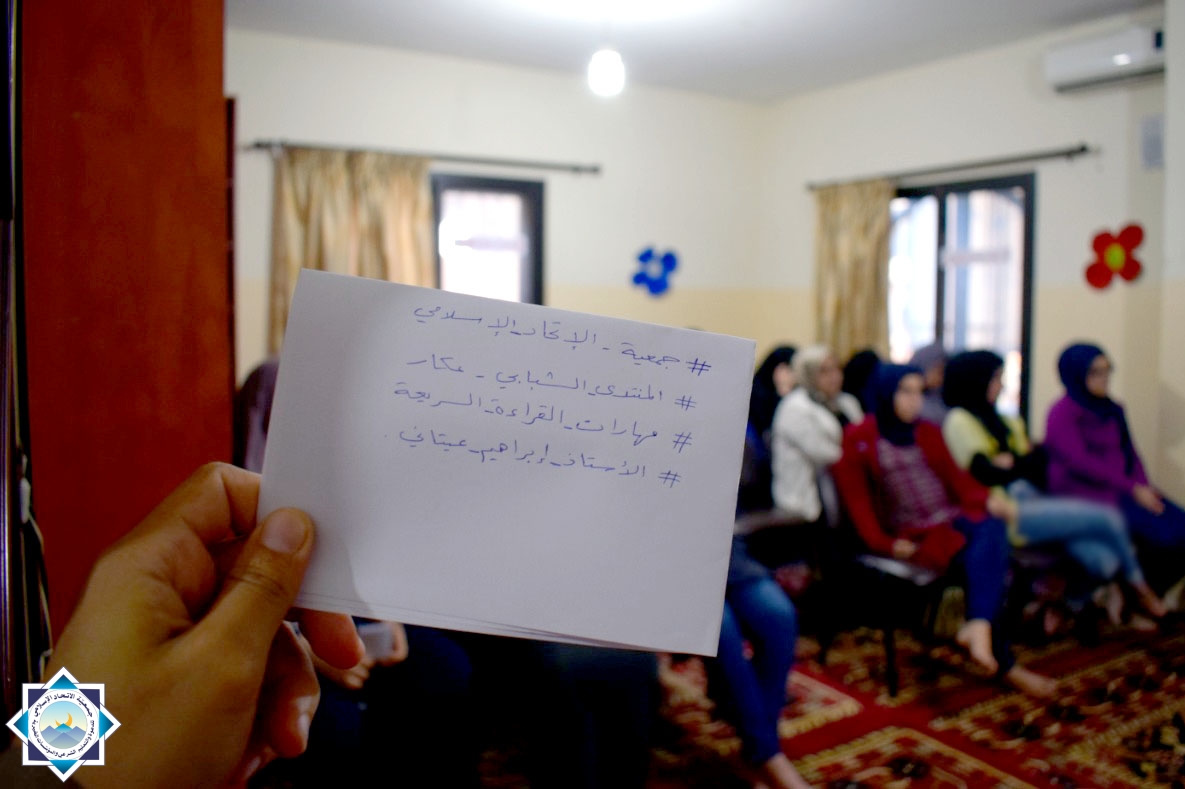 # جمعية - الإتحاد_الإسلامي
# المنتدى_الشبابي - عكار
# مهارات_القراءة_السريعة
# الأستاذ_إبراهيم_عيتاني.
جمعية الاتحاد الإسلامي